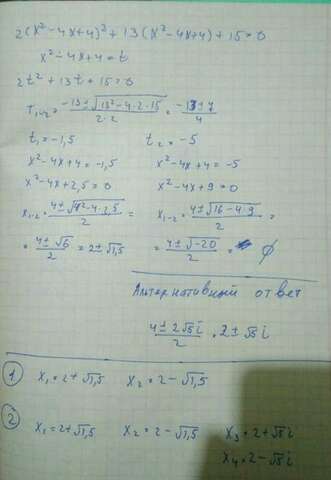 2(x²-4x+4)²+13(x²-4x+4)+15=0
x²-4x+4=t
2t²+13t+15=0
T₁,₂=(-13±√(13²-4·2·15))/(2·2)=(-13±7)/4
t₁=-1,5 t₂=-5
x²-4x+4=-1,5 x²-4x+4=-5
x²-4x+2,5=0 x²-4x+9=0
x₁-₂=(4±√(4²-4·2,5))/2= x₁-₂=(4±√(16-4·9))/2=
=(4±√6)/2=2±√1,5 =(4±√-20)/2= ∅
Альтернативный ответ
(4±2√5i)/2 · 2±√5i
① x₁=2+√1,5 x₂=2-√1,5
② x₁=2+√1,5 x₂=2-√1,5 x₃=2+√5i
x₄=2-√5i